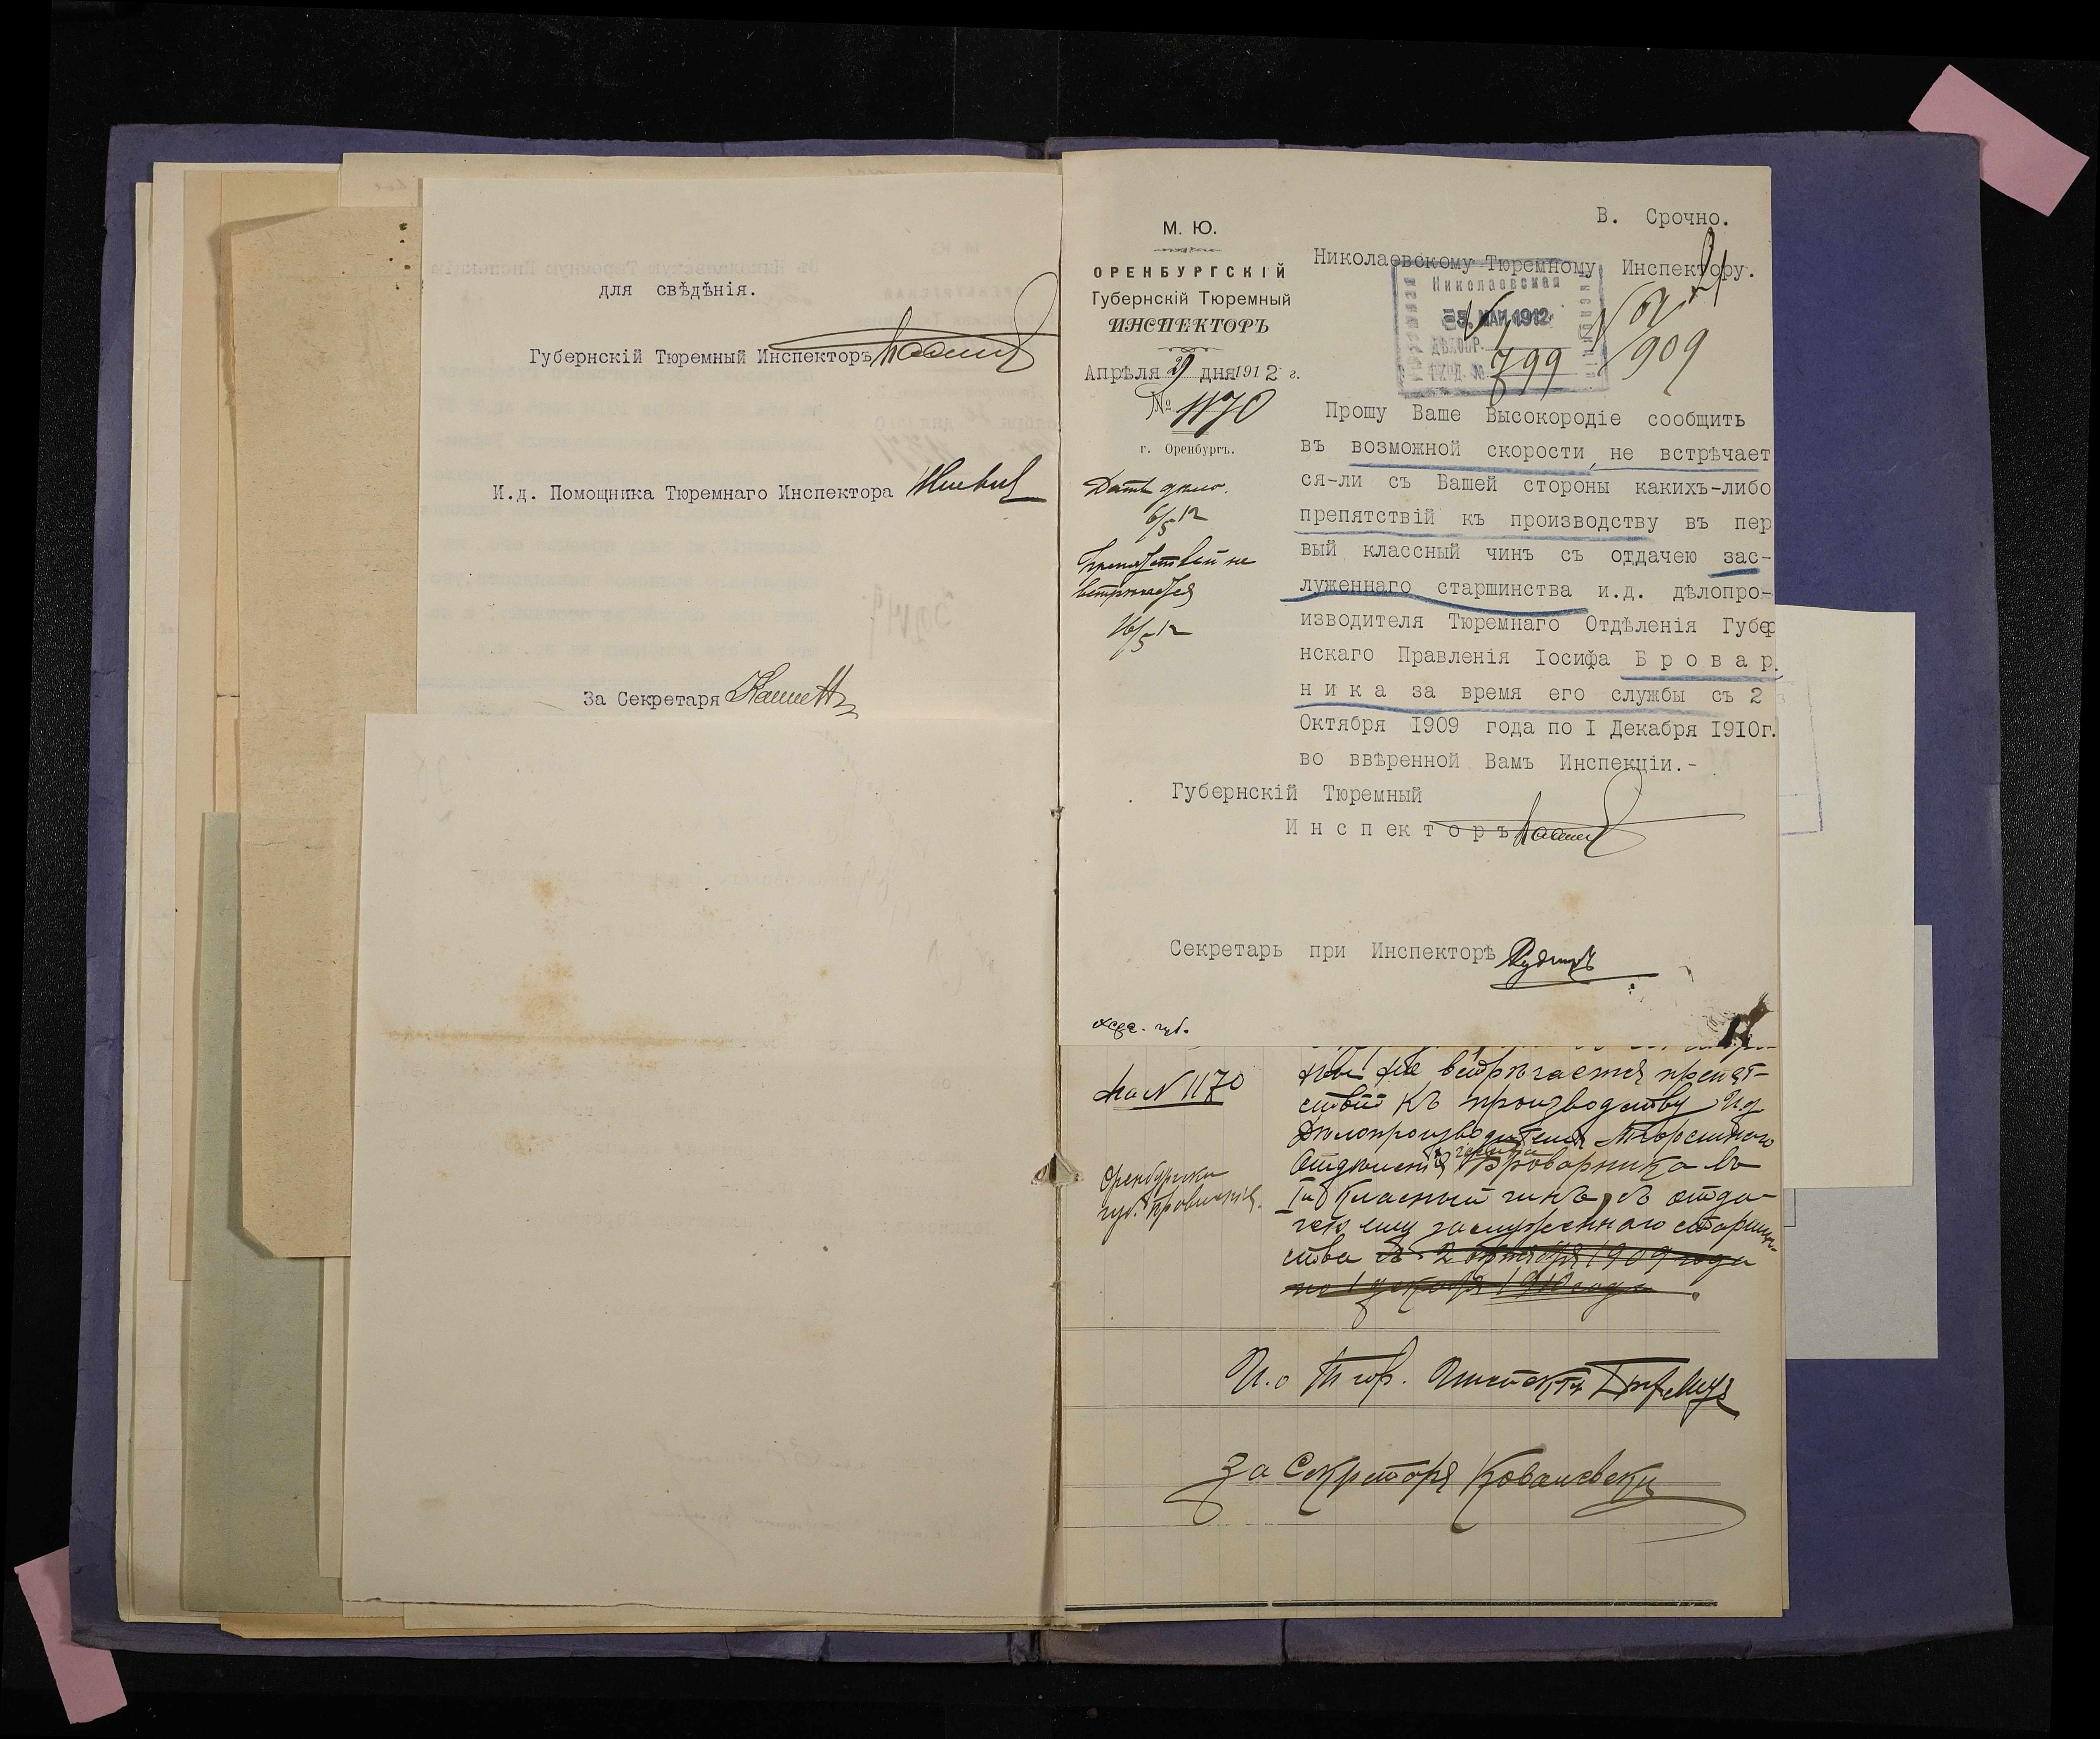 для свѣдѣнія.
Губернскій Тюремный Инспекторъ
И.д. Помощника Тюремнаго Инспектора
За Секретаря
М. Ю.
ОРЕНБУРГСКІЙ
Губернскій Тюремный
ИНСПЕКТОРЪ
Апрѣля 29 дня 1912 г.
№ 1170
г. Оренбургъ.
Дать дѣло.
6/5 12
Препятствій не
встрѣчается
16/5 12
В. Срочно.
21
Николаевскому Тюремному Инспектору.
Николаевская
5 МАЙ 1912
799
909
Прошу Ваше Высокородіе сообщить
въ возможной скорости, не встрѣчает
ся-ли съ Вашей стороны какихъ-либо
препятствій къ производству въ пер
вый классный чинъ съ отдачею зас-
луженнаго старшинства и.д. дѣлопро-
изводителя Тюремнаго Отдѣленія Губер
нскаго Правленія Іосифа Бровар
ника за время его службы съ 2
Октября 1909 года по I Декабря 1910г.
во ввѣренной Вамъ Инспекціи.-
Губернскій Тюремный
Инспекторъ
Секретарь при Инспекторѣ
На № 1170
Оренбургск
губ. Правленіе.
не встрѣчается препят-
ствій къ производству И.д.
Дѣлопроизводителя Тюремнаго
Отдѣленія Броварника въ
Iй Классный чинъ, съ отда-
чей ему заслуженнаго старшин-
ства съ 2 октября 1909 года
по 1 декабря 1910 года.
И.о Тюр. Инспект.
За Секретаря Ковалевск